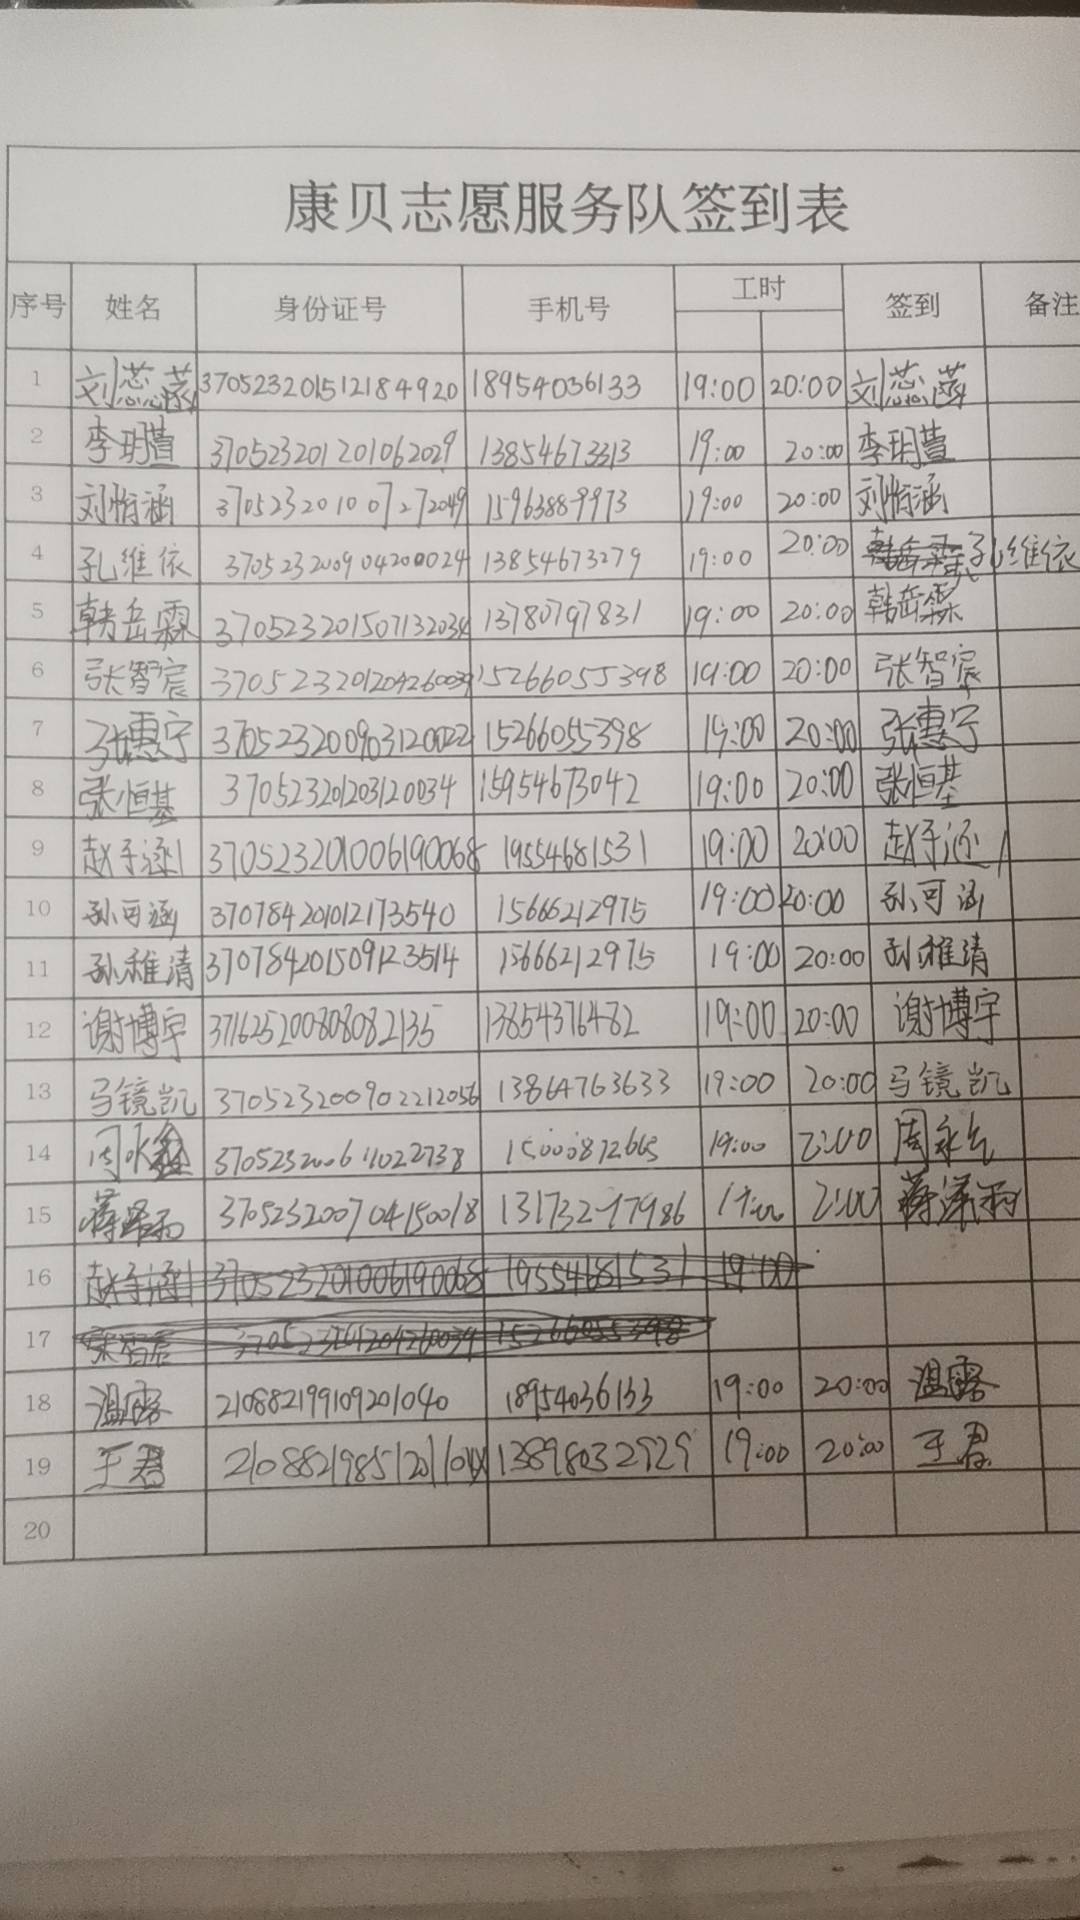 康贝志愿服务队签到表
序号 姓名 身份证号 手机号 工时 签到 备注
1 刘蕊菡 370523201512184920 18954036133 19:00 20:00 刘蕊菡
2 李玥萱 370523201201062029 13854673313 19:00 20:00 李玥萱
3 刘怡涵 370523201007272049 15963889973 19:00 20:00 刘怡涵
4 孔维依 370523200904200024 13854673279 19:00 20:00 孔维依
5 韩岳霖 370523201507132034 13780797831 19:00 20:00 韩岳霖
6 张智宸 370523201204260039 15266055398 19:00 20:00 张智宸
7 张惠宁 370523200903120022 15266055398 19:00 20:00 张惠宁
8 张恒基 370523201203120034 15954673042 19:00 20:00 张恒基
9 赵子涵 370523201006190068 19554681531 19:00 20:00 赵子涵
10 孙可涵 370784201012173540 15666212975 19:00 20:00 孙可涵
11 孙稚清 370784201509123514 15666212975 19:00 20:00 孙稚清
12 谢博宇 371625200808082135 13854376482 19:00 20:00 谢博宇
13 马镜凯 370523200902212056 13864763633 19:00 20:00 马镜凯
14 周永鑫 370523200611022738 19:00 2:00 周永
15 蒋泽雨 370523200704150018 13173297986 19:00 2:00 蒋泽雨
16 赵子涵 370523201006190068 19554681531 19:00
17 张智宸 370523201204260039 15266055398
18 温露 210882199109201040 18954036133 19:00 20:00 温露
19 王君 13898032929 19:00 20:00 王君
20